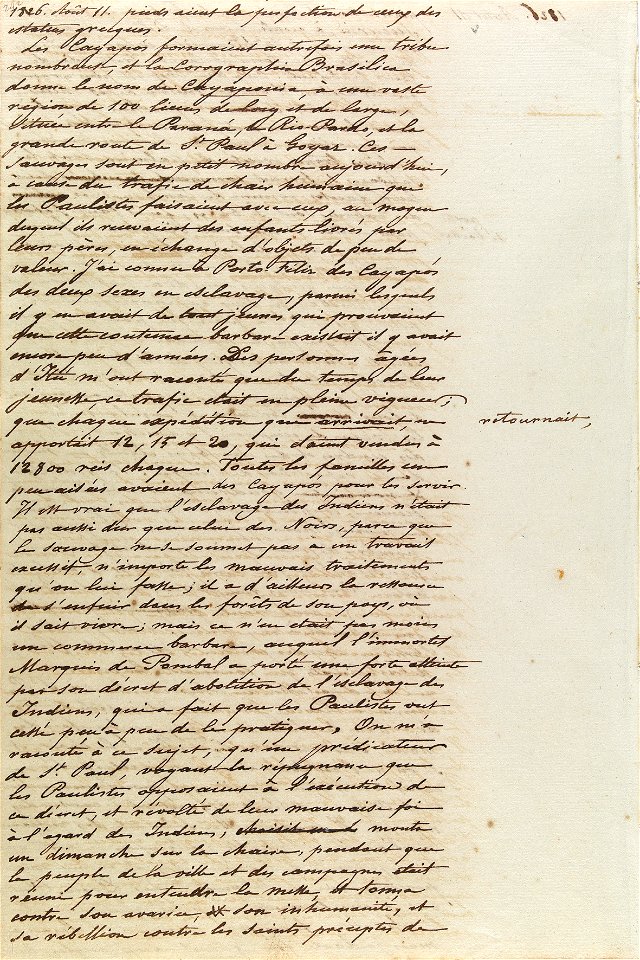 1826. Août 11. pieds aient la perfection de ceux des
statues grecques.
Les Cayapós formaient autrefois une tribu
nombreuse, et la Corographia Brasilica
donne le nom de Cayaponia, à une vaste
région de 100 lieues de long et de large,
située entre le Paraná, le Rio Pardo, et la
grande route de St. Paul à Goyaz. Ces
sauvages sont en petit nombre aujourd'hui,
à cause du trafic de chair humaine que
les Paulistes faisaient avec eux, au moyen
duquel ils recevaient des enfants livrés par
leurs pères, en échange d'objets de peu de
valeur. J'ai connu à Porto Feliz des Cayapós
des deux sexes en esclavage, parmi lesquels
il y en avait de tout jeunes, qui prouvaient
que cette coutume barbare existait il y avait
encore peu d'années. Des personnes âgées
d'Itú m'ont raconté que du temps de leur
jeunesse, ce trafic était en pleine vigueur;
que chaque expédition que arrivait en
retournait,
apportait 12, 15 et 20, qui étaient vendus à
12800 reis chaque. Toutes les familles un
peu aisées avaient des Cayapós pour les servir.
Il est vrai que l'esclavage des Indiens n'était
pas aussi dur que celui des Noirs, parce que
le sauvage ne se soumet pas à un travail
excessif, n'importe les mauvais traitements
qu'on lui fasse; il a d'ailleurs la ressource
de s'enfuir dans les forêts de son pays, où
il sait vivre; mais ce n'en était pas moins
un commerce barbare, auquel l'immortel
Marquis de Pombal a porté une forte atteinte
par son décret d'abolition de l'esclavage des
Indiens, qui a fait que les Paulistes ont
cessé peu à peu de le pratiquer. On m'a
raconté à ce sujet, qu'un prédicateur
de St. Paul, voyant la répugnance que
les Paulistes opposaient à l'exécution de
ce décret, et révolté de leur mauvaise foi
à l'égard des Indiens, monta
un dimanche sur la chaire, pendant que
le peuple de la ville et des campagnes était
réuni pour entendre la messe, et tonna
contre son avarice, son inhumanité, et
sa rébellion contre les saints préceptes de